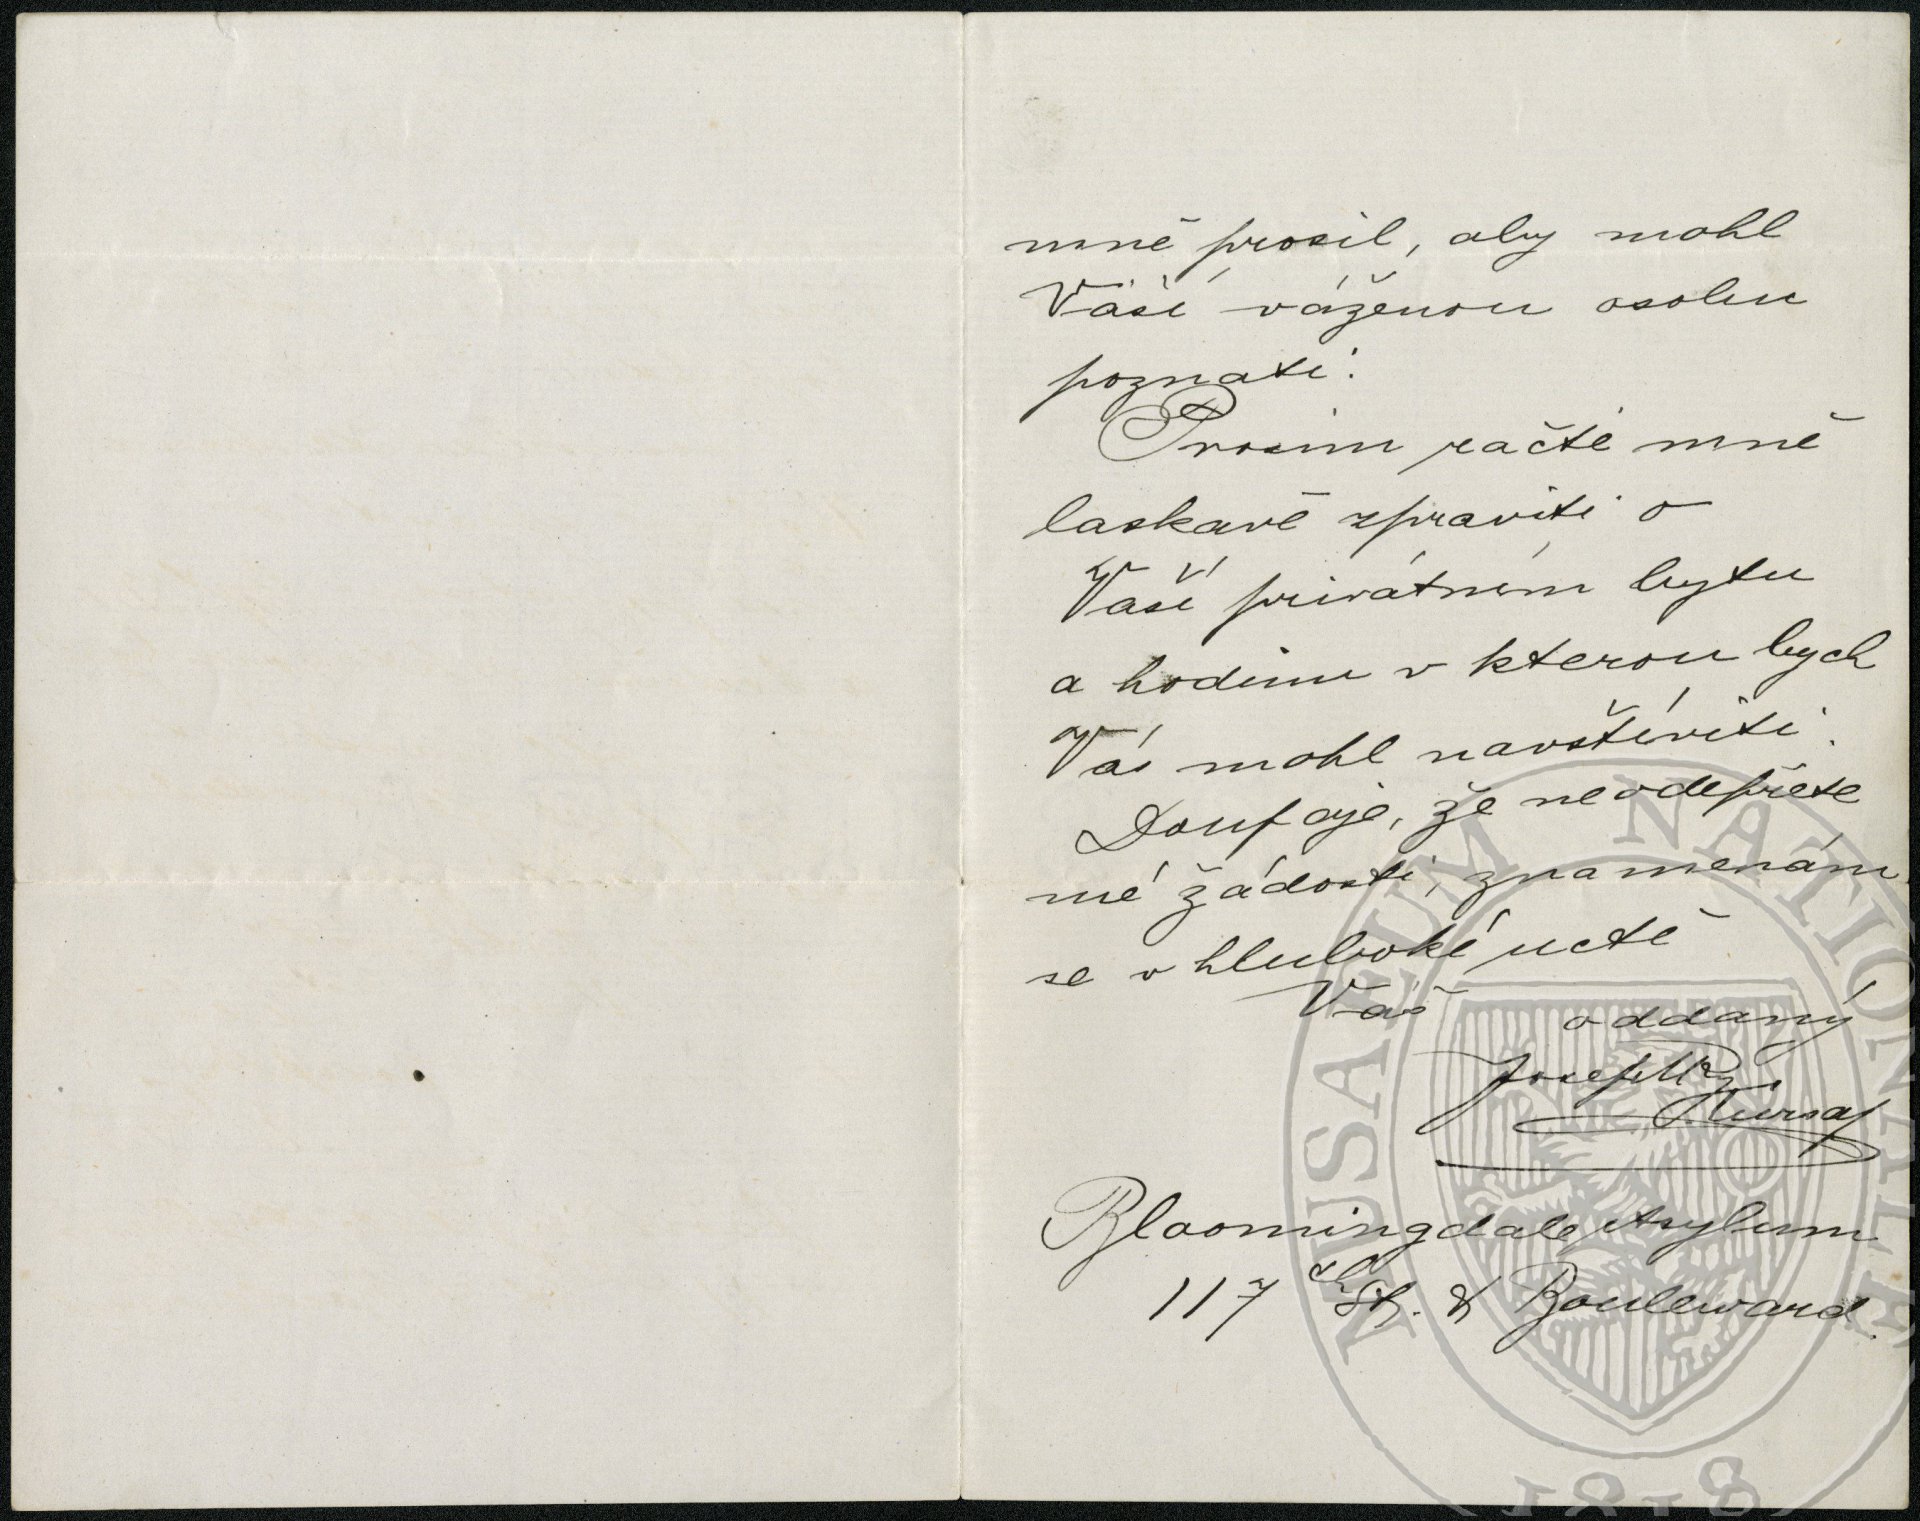 mně prosil, aby mohl
Vaší váženou osobu
poznati.
Prosím račte mně
laskavě zpraviti o
Vaší privátním bytu
a hodinu v kterou bych
Vás mohl navštíviti.
Doufaje, že neodepřete
mé žádosti, znamenám
se v hluboké uctě
Váš oddaný
Josef
Bloomingdale Asylum
117 th St. & Boulevard.
MUSAEUM NATIONALE
1818